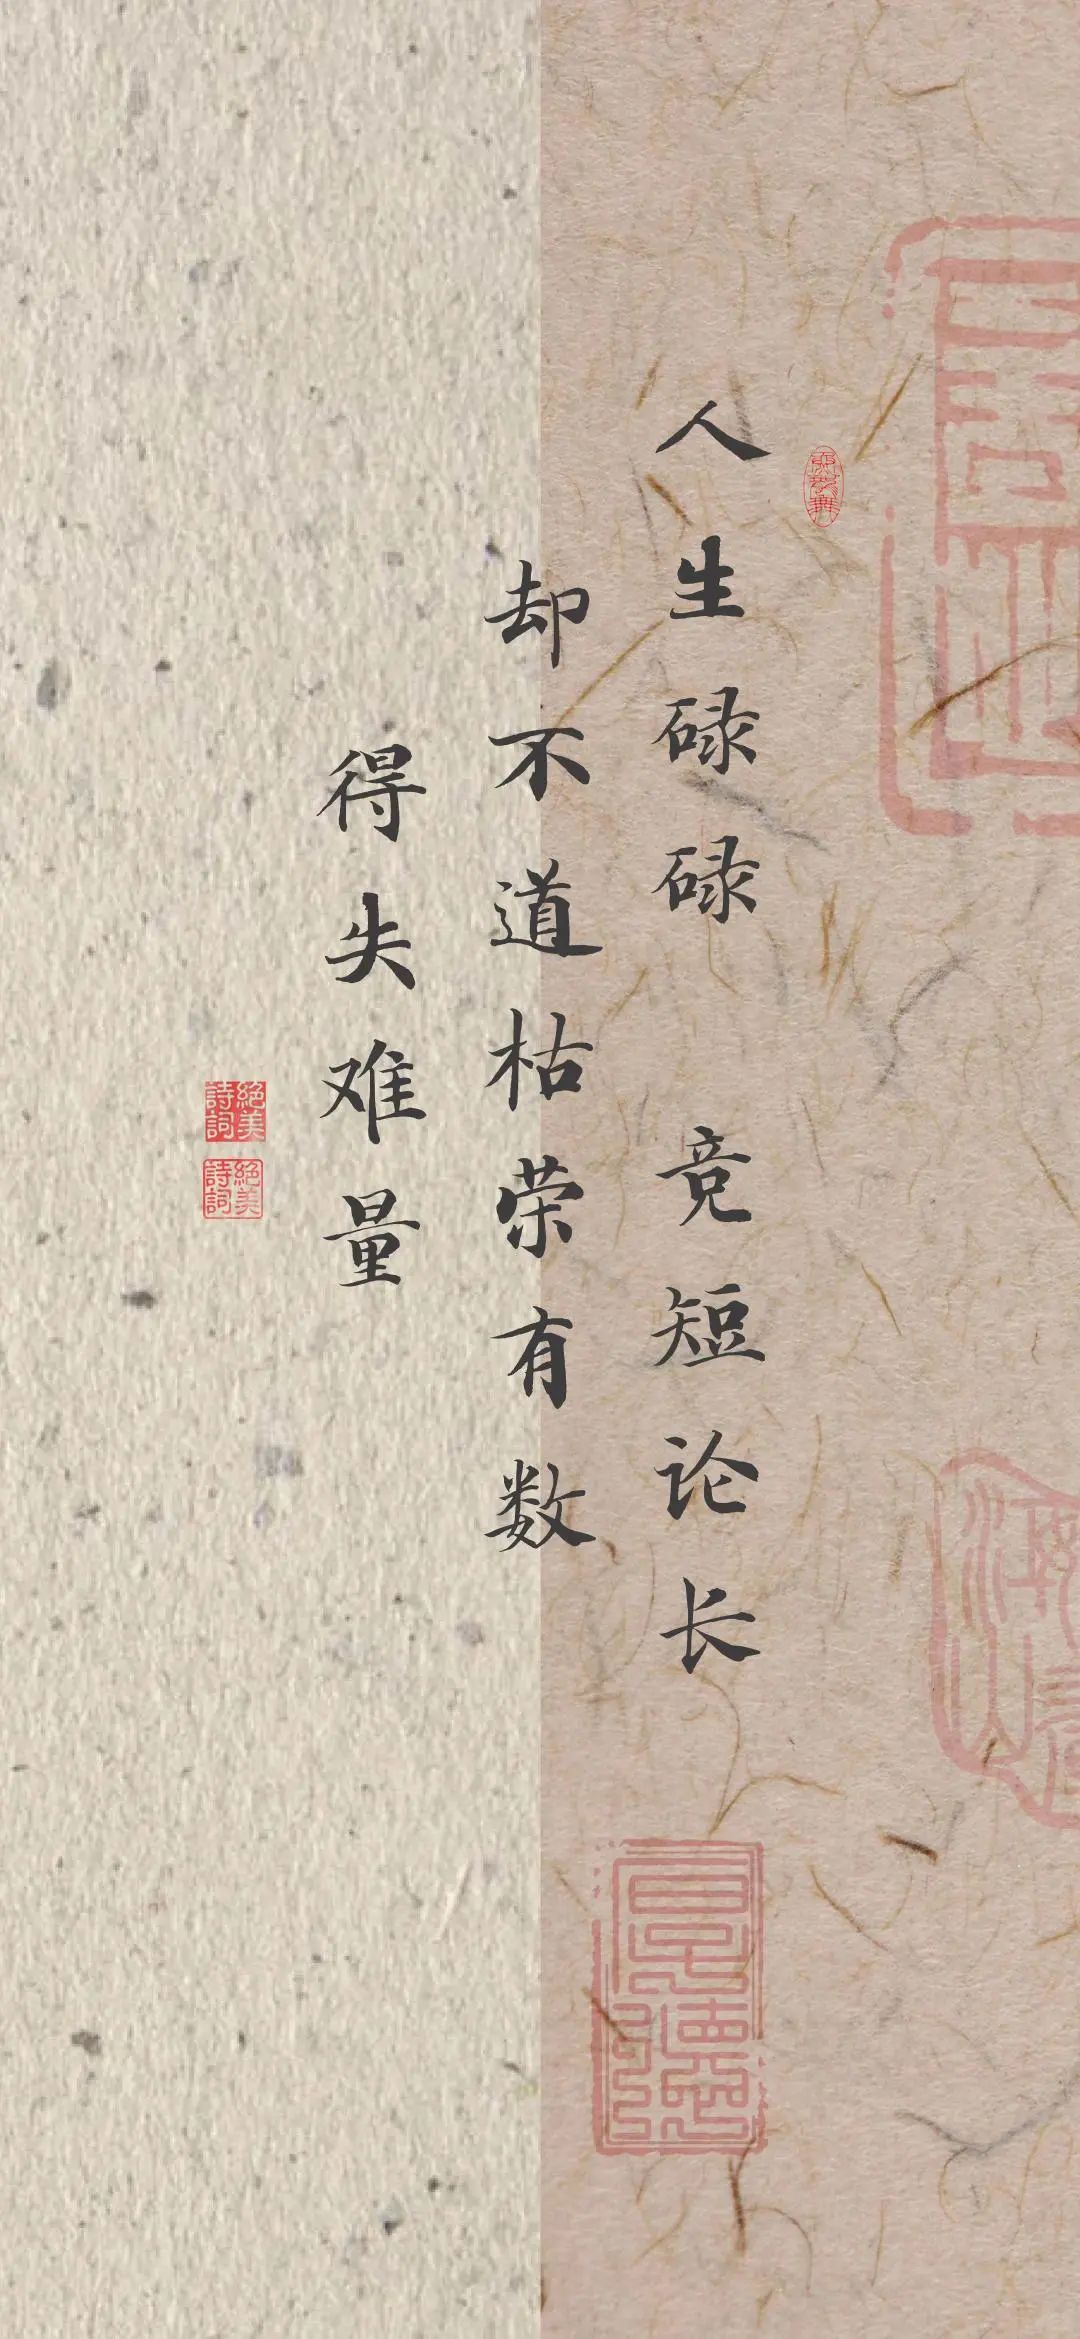 人生碌碌 竞短论长
却不道枯荣有数
得失难量
絕美詩詞
絕美詩詞